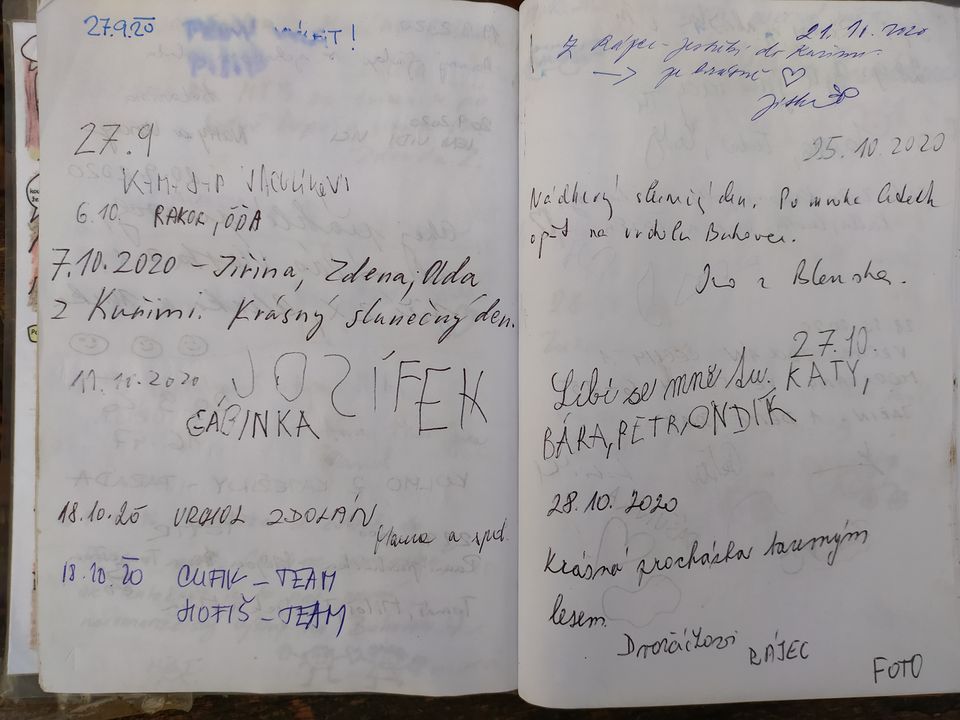 27.9.20
27.9
6.10. RAKOR, ÓĎA
7.10.2020 - Jiřina, Zdena, Ada
z Kuřimi. Krásný slunečný den.
11.10.2020 JOSÍFEK
GÁBINKA
18.10.20 VRCHOL ZDOLÁN
Hanna a spol.
18.10.20 CUFIK - TEAM
HOFIŠ - TEAM
21.10.2020
Z Rájce-Jestřebí do Kuřimi
→ je krásně ♡
Jitka
25.10.2020
Nádherný slunný den. Po mnoha letech
opět na vrcholu Bukovec.
Ivo z Blanska.
27.10.
Líbí se mně tu. KATY,
BÁRA, PETR, ONDÍK
28.10.2020
Krásná procházka barevným
lesem
Dvořáčkovi RÁJEC
FOTO